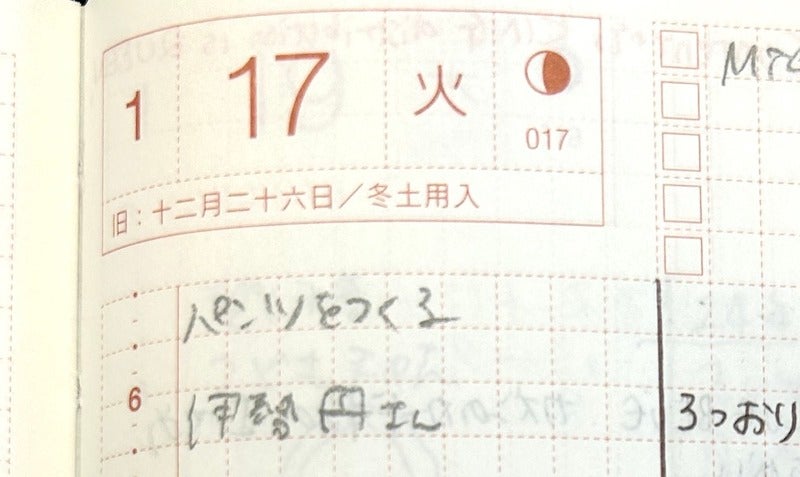 1 17 火 017
旧：十二月二十六日／冬土用入
パンツをつくる
6 伊勢丹さん
3つおり